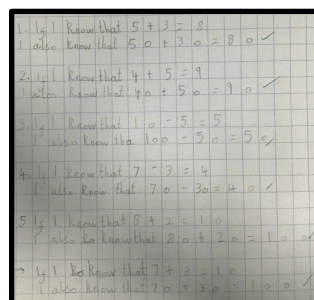 1. If I know that 5 + 3 = 8
I also know that 50 + 30 = 80 ✓
2. If I know that 4 + 5 = 9
I also know that 40 + 50 = 90 ✓
3. If I know that 10 - 5 = 5
I also know tha 100 - 50 = 50 ✓
4. If I know that 7 - 3 = 4
I also know that 70 - 30 = 40 ✓
5 If I know that 8 + 2 = 10
I also know that 80 + 20 = 100 ✓
→ If I know that 7 + 3 = 10
I also know that 70 + 30 = 100 ✓